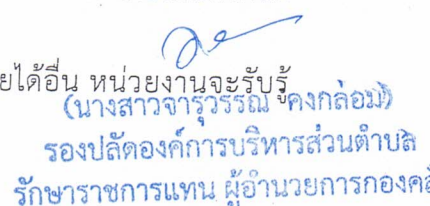 ยได้อื่น หน่วยงานจะรับรู้
(นางสาวจารุวรรณ คงกล่อม)
รองปลัดองค์การบริหารส่วนตำบล
รักษาราชการแทน ผู้อำนวยการกองคลั